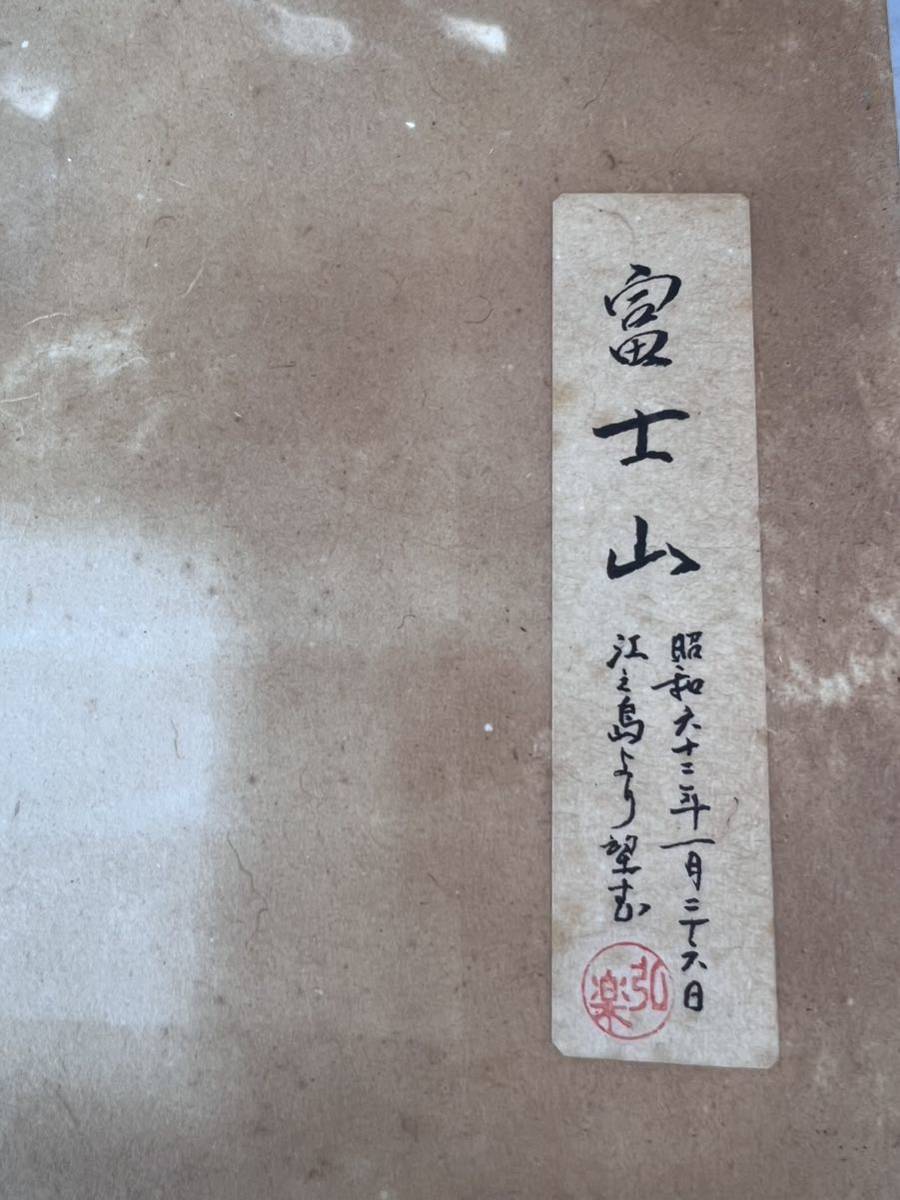 富士山
昭和六十二年一月二十六日
江之島より望む
弘楽